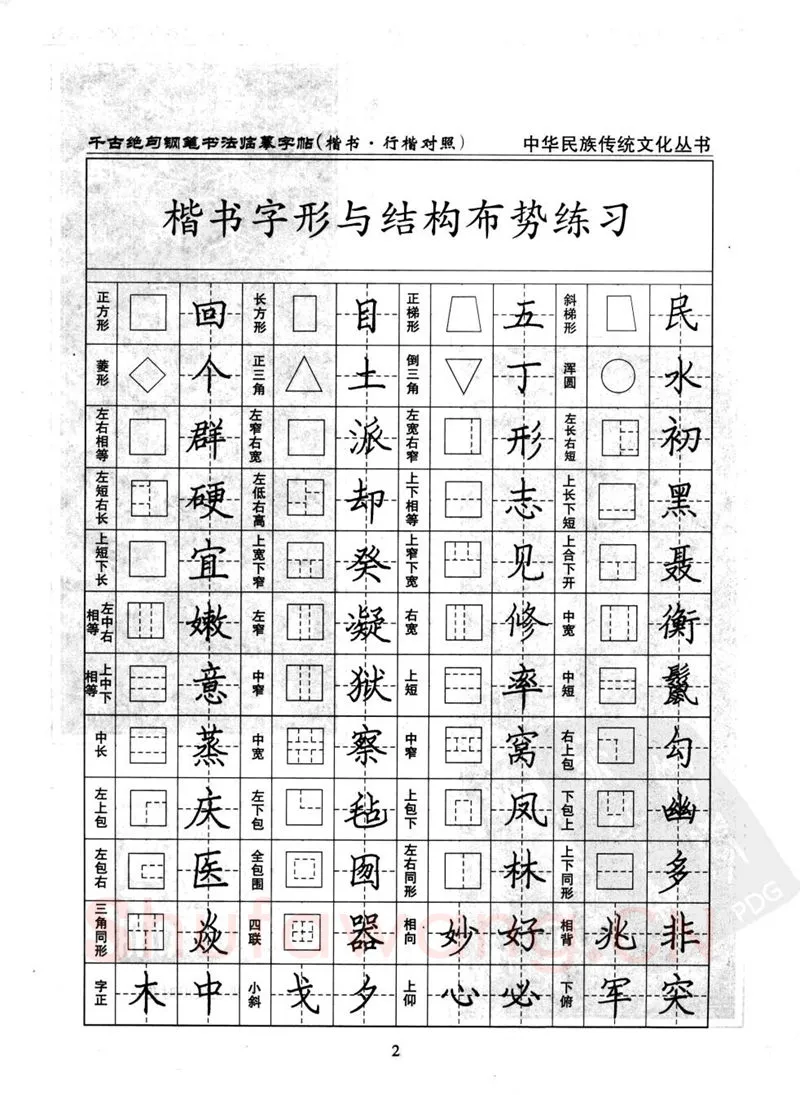 千古绝句钢笔书法临摹字帖(楷书·行楷对照) 中华民族传统文化丛书
楷书字形与结构布势练习
正方形 回 长方形 目 正梯形 五 斜梯形 民
菱形 个 正三角 土 倒三角 丁 浑圆 水
左右相等 群 左窄右宽 派 左宽右窄 形 左长右短 初
左短右长 硬 左低右高 却 上下相等 志 上长下短 黑
上短下长 宜 上宽下窄 癸 上窄下宽 见 上合下开 聂
左中右相等 嫩 左窄 凝 右宽 修 中宽 衡
上中下相等 意 中窄 狱 上短 率 中短
中长 蒸 中宽 察 中窄 窝 右上包 勾
左上包 庆 左下包 毡 上包下 凤 下包上 幽
左包右 医 全包围 囫 左右同形 林 上下同形 多
三角同形 焱 四联 器 相向 妙 好 相背 兆 非
字正 木 中 小斜 戈 夕 上仰 心 必 下俯 军 突
Shufawang.CN
PDG
2